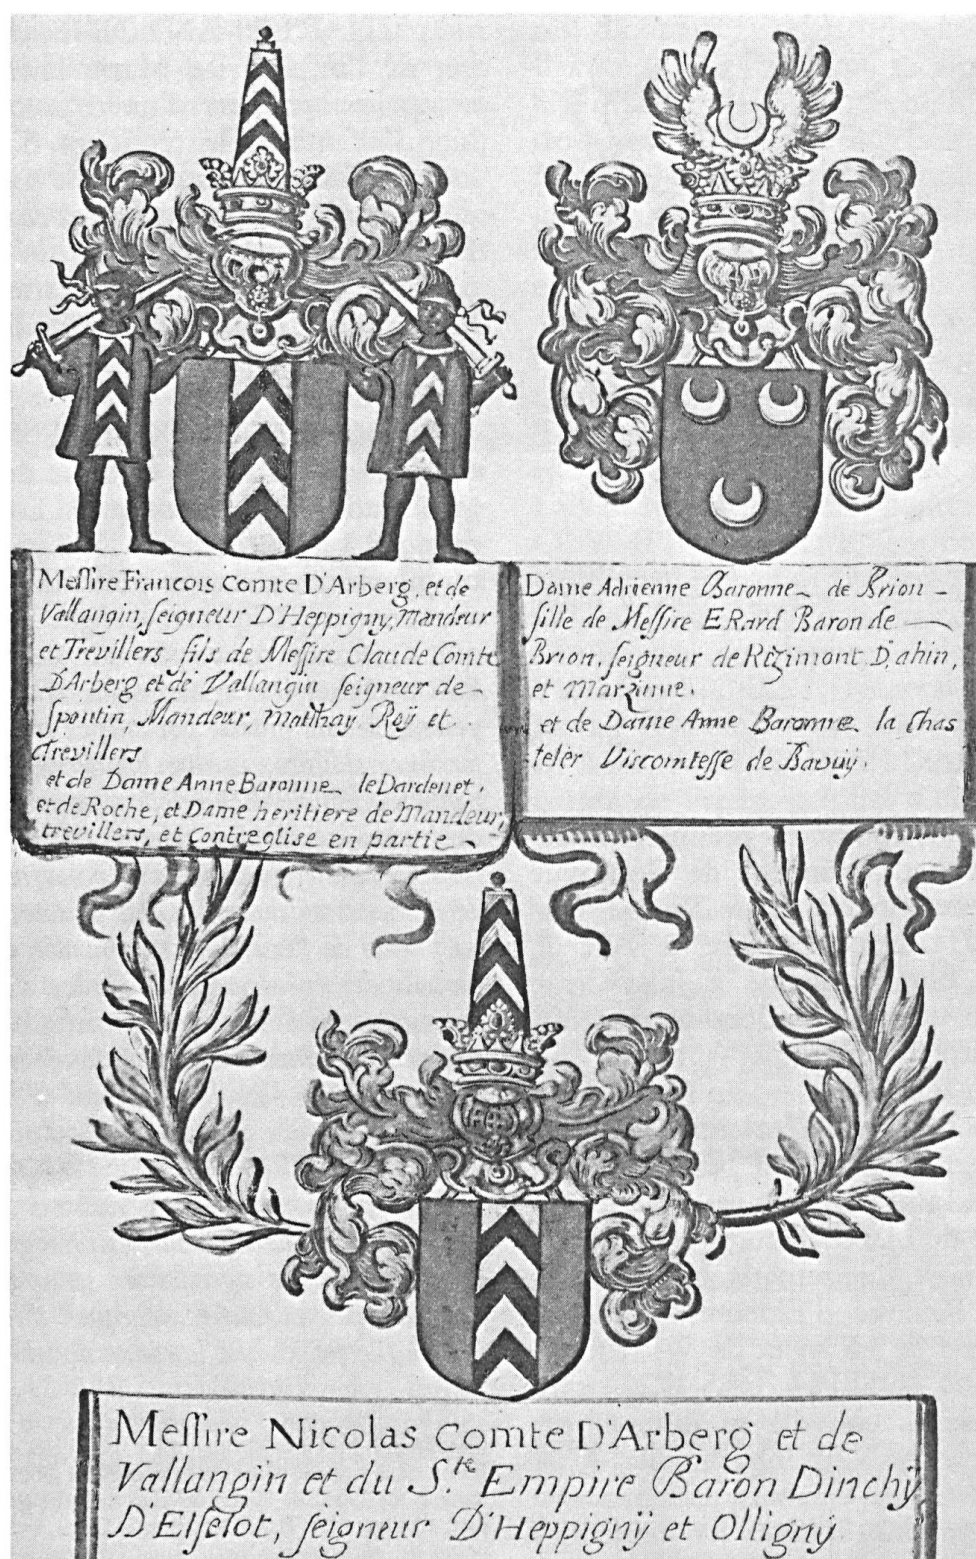 Meſſire Francois Comte D'Arberg, et de
Vallangin, ſeigneur D'Heppigny, Mandeur
et Trevillers fils de Meſſire Claude Comte
D'Arberg et de Vallangin ſeigneur de
ſpontin, Mandeur, Matthay Roÿ et
Trevillers
et de Dame Anne Baronne le Dardenet.
et de Roche, et Dame heritiere de Mandeur,
trevillers, et Contreglise en partie
Dame Adrienne Baronne de Brion
fille de Meſſire ERard Baron de
Brion, ſeigneur de D'ahin,
et
et de Dame Anne Baronne la Chas
teler Viscomteſſe de
Meſſire Nicolas Comte D'Arberg et de
Vallangin et du S.te Empire Baron Dinchÿ
D'Elſelot, ſeigneur D'Heppignÿ et Ollignÿ